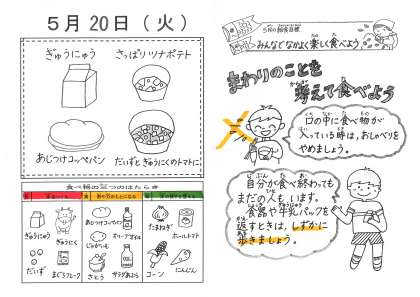 5月20日（火）
ぎゅうにゅう
さっぱりツナポテト
あじつけコッペパン
だいずとぎゅうにくのトマトに
食べ物の三つのはたらき
ぎゅうにゅう
ぎゅうにく
だいず
まぐろフレーク
あじつけコッペパン
じゃがいも
オリーブオイル
さとう
サラダあぶら
たまねぎ
ホールトマト
コーン
にんじん
5月の給食目標
みんなでなかよく楽しく食べよう
まわりのことを
考えて食べよう
口の中に食べ物が
入っている時は、おしゃべりを
やめましょう。
自分が食べ終わっても
まだの人もいます。
食器や牛乳パックを
返すときは、しずかに
歩きましょう。